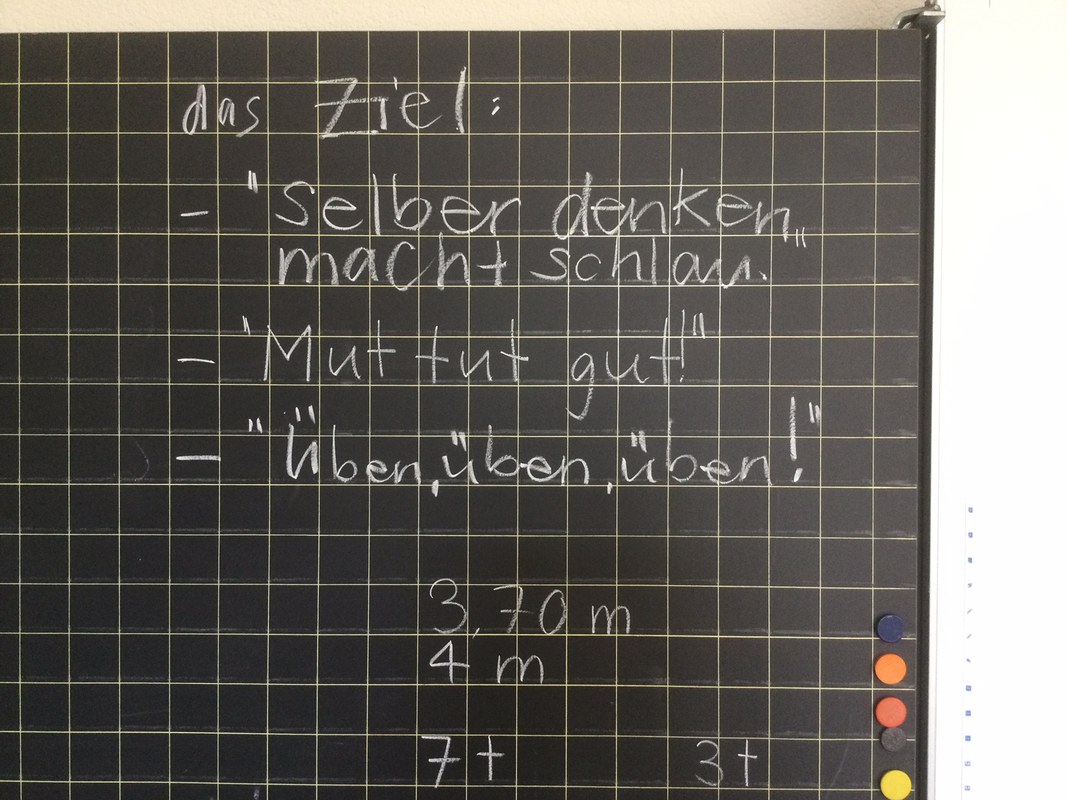 das Ziel:
- "Selber denken„
macht schlau."
- "Mut tut gut!"
- "Üben, üben, üben!"
3,70 m
4 m
7t 3t